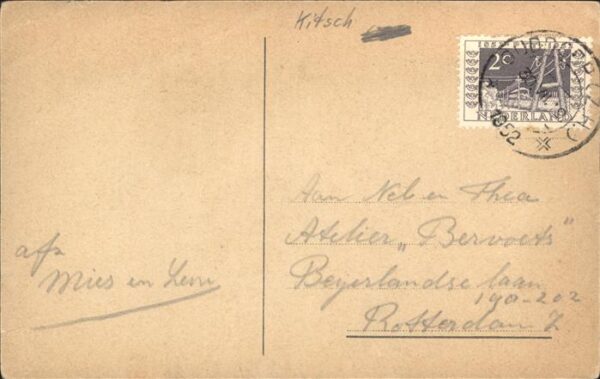 Kitsch
1852 1952
2c
NEDERLAND
1952
afz
Mies en
Aan Nel en Thea
Atelier „Bervoets"
Beyerlandse laan
190-202
Rotterdam Z